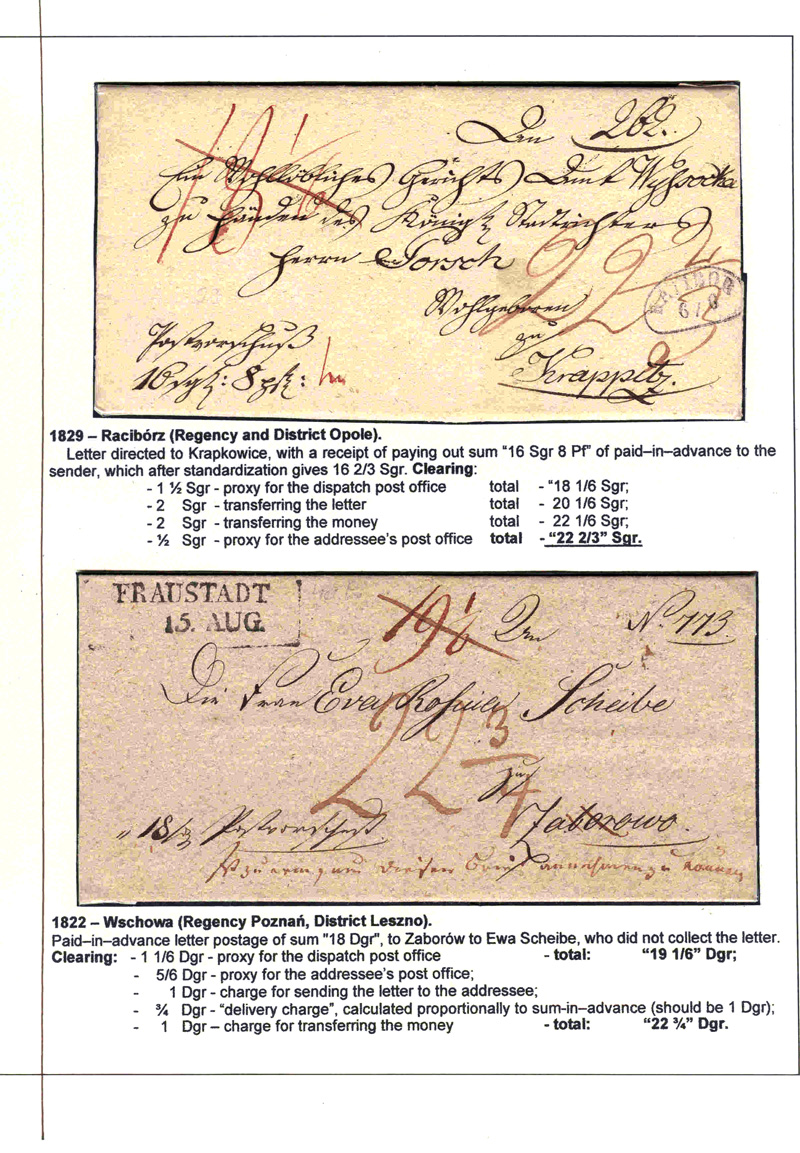 Den 262.
Ein Wohllöbliches Gerichts Amt Wÿssocka
18 1/6
zu Händen des Königl. Stadtrichters
Herrn Gorsch
22 2/3
RATIBOR
6/8
Wohlgeboren
zu
Krappitz.
Postvorschuß
16 sgl: 8 pf:
1829 – Racibórz (Regency and District Opole).
Letter directed to Krapkowice, with a receipt of paying out sum “16 Sgr 8 Pf” of paid–in–advance to the
sender, which after standardization gives 16 2/3 Sgr. Clearing:
- 1 ½ Sgr - proxy for the dispatch post office total - “18 1/6 Sgr;
- 2 Sgr - transferring the letter total - 20 1/6 Sgr;
- 2 Sgr - transferring the money total - 22 1/6 Sgr;
- ½ Sgr - proxy for the addressee's post office total - “22 2/3” Sgr.
FRAUSTADT
15. AUG.
19 1/6
Den
No. 773.
Die Frau Eva Rosina Scheibe
22 3/4
zu
Zaborowo.
18 Postvorschuß.
diesen Brief annehmen zu können
1822 – Wschowa (Regency Poznań, District Leszno).
Paid–in–advance letter postage of sum "18 Dgr", to Zaborów to Ewa Scheibe, who did not collect the letter.
Clearing: - 1 1/6 Dgr - proxy for the dispatch post office - total: “19 1/6” Dgr;
- 5/6 Dgr - proxy for the addressee's post office;
- 1 Dgr - charge for sending the letter to the addressee;
- ¾ Dgr - “delivery charge”, calculated proportionally to sum-in–advance (should be 1 Dgr);
- 1 Dgr – charge for transferring the money - total: “22 ¾” Dgr.